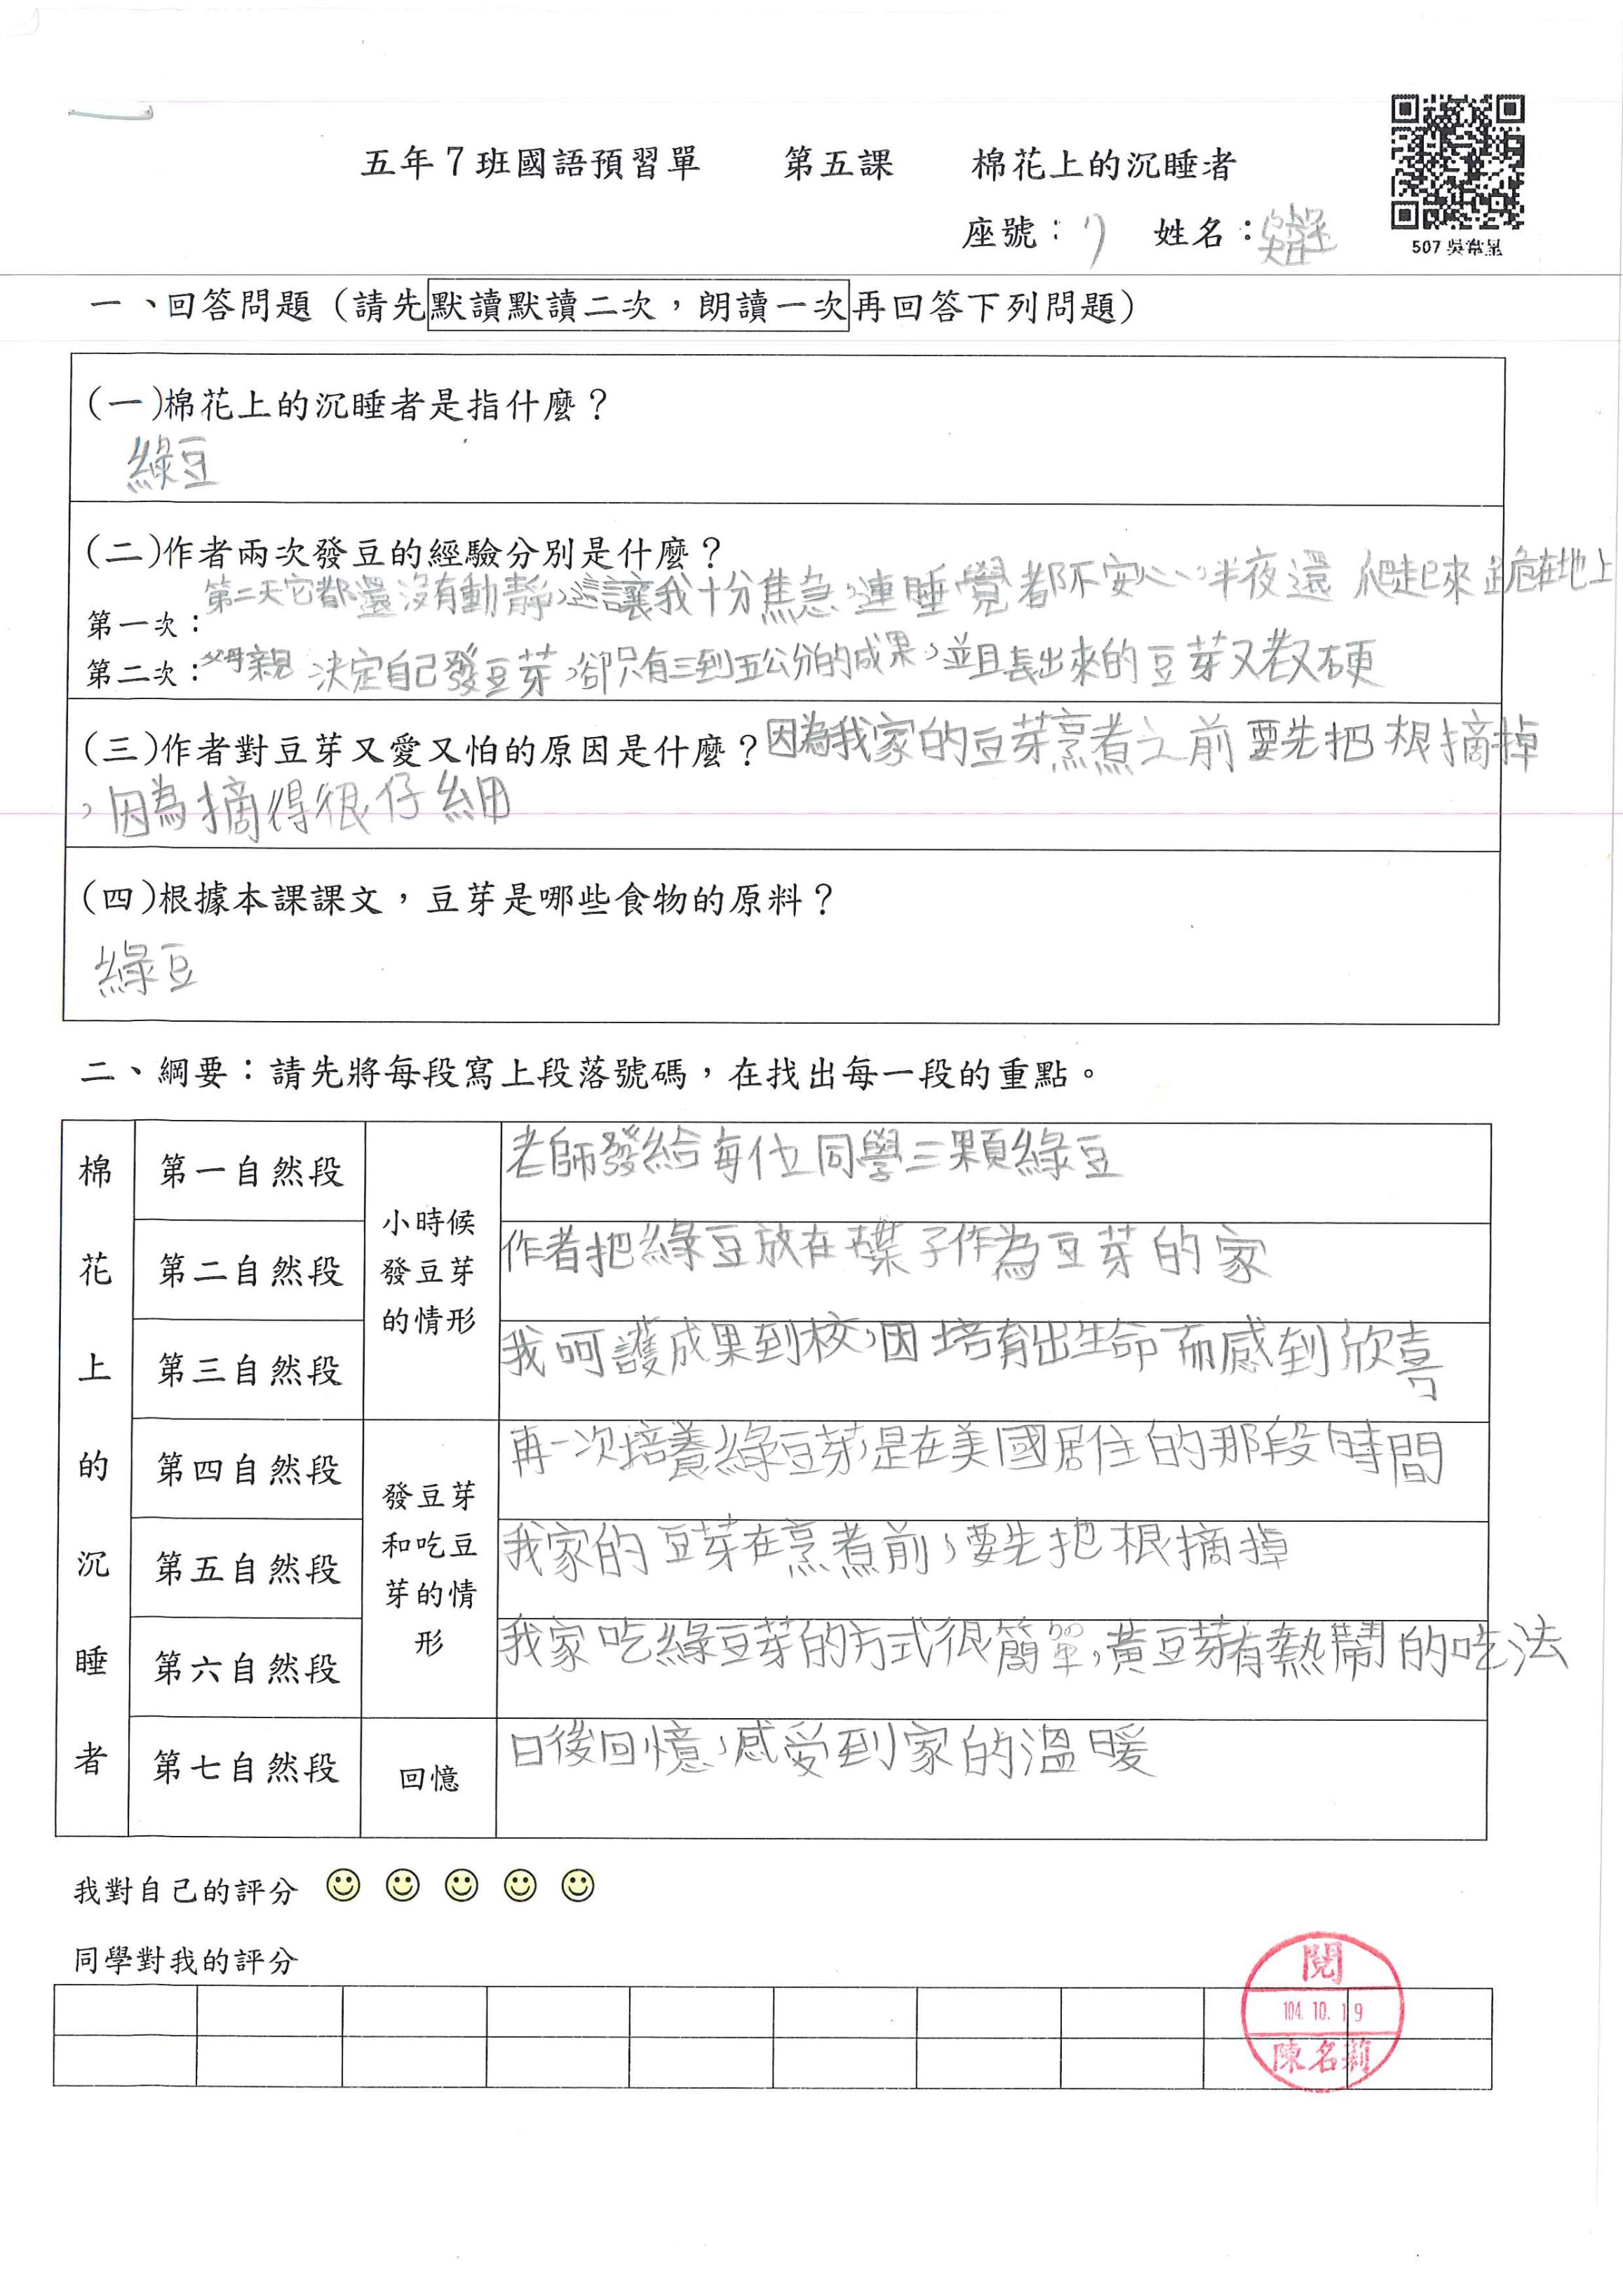 五年7班國語預習單　　第五課　　棉花上的沉睡者
座號：7　姓名：
507 吳常呈
一、回答問題（請先默讀默讀二次，朗讀一次再回答下列問題）
(一)棉花上的沉睡者是指什麼？
綠豆
(二)作者兩次發豆的經驗分別是什麼？
第一次：第二天它都還沒有動靜，這讓我十分焦急，連睡覺都不安心，半夜還爬起來跪在地上
第二次：父母親決定自己發豆芽，卻只有三到五公分的成果，並且長出來的豆芽又老又硬
(三)作者對豆芽又愛又怕的原因是什麼？因為我家的豆芽烹煮之前要先把根摘掉
，因為摘得很仔細
(四)根據本課課文，豆芽是哪些食物的原料？
綠豆
二、綱要：請先將每段寫上段落號碼，在找出每一段的重點。
棉花上的沉睡者
小時候發豆芽的情形
第一自然段 老師發給每位同學三顆綠豆
第二自然段 作者把綠豆放在碟子作為豆芽的家
第三自然段 我呵護成果到校，因培育出生命而感到欣喜
發豆芽和吃豆芽的情形
第四自然段 再一次培養綠豆芽，是在美國居住的那段時間
第五自然段 我家的豆芽在烹煮前，要先把根摘掉
第六自然段 我家吃綠豆芽的方式很簡單，黃豆芽有熱鬧的吃法
第七自然段 回憶 日後回憶，感受到家的溫暖
我對自己的評分
同學對我的評分
閱
104.10.19
陳名莉